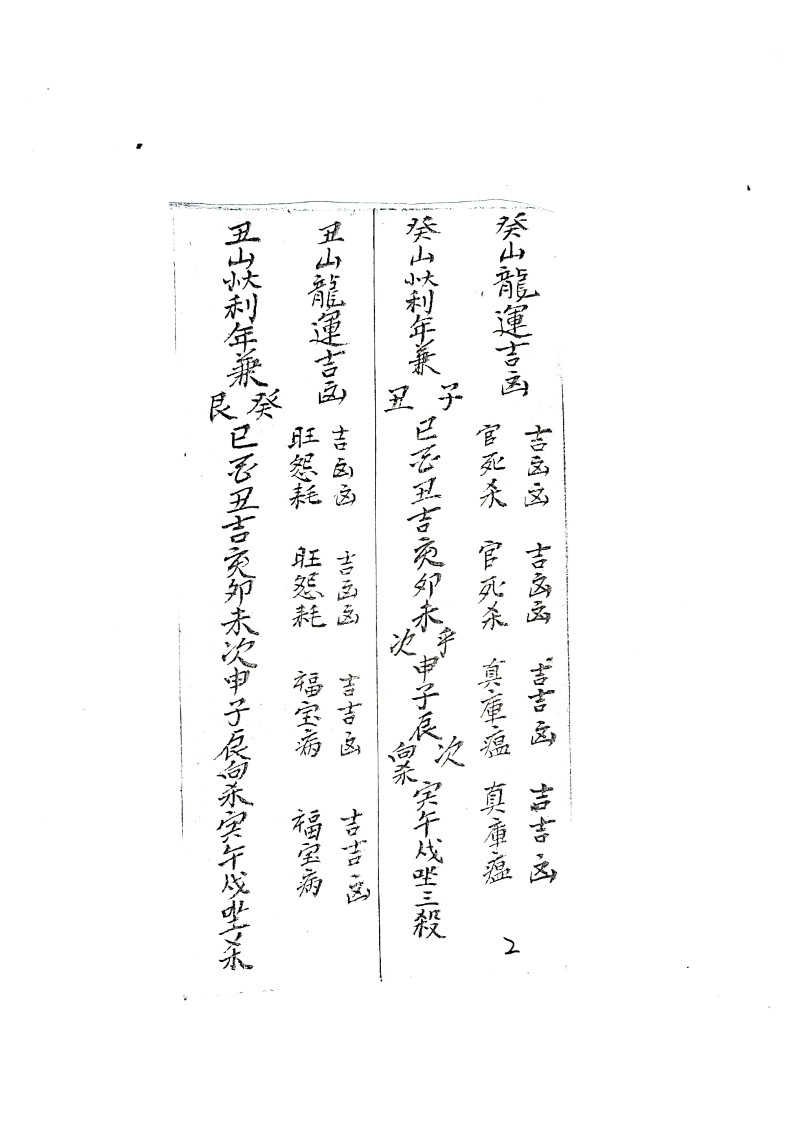 癸山龍運吉凶
吉凶凶 吉凶凶 吉吉凶 吉吉凶
官死杀 官死杀 真庫瘟 真庫瘟
癸山伏利年兼子丑巳酉丑吉亥卯未平次申子辰次向杀寅午戌坐三殺
丑山龍運吉凶
吉凶凶 吉凶凶 吉吉凶 吉吉凶
旺怨耗 旺怨耗 福宝病 福宝病
丑山伏利年兼癸艮巳酉丑吉亥卯未次申子辰向杀寅午戌坐杀
2